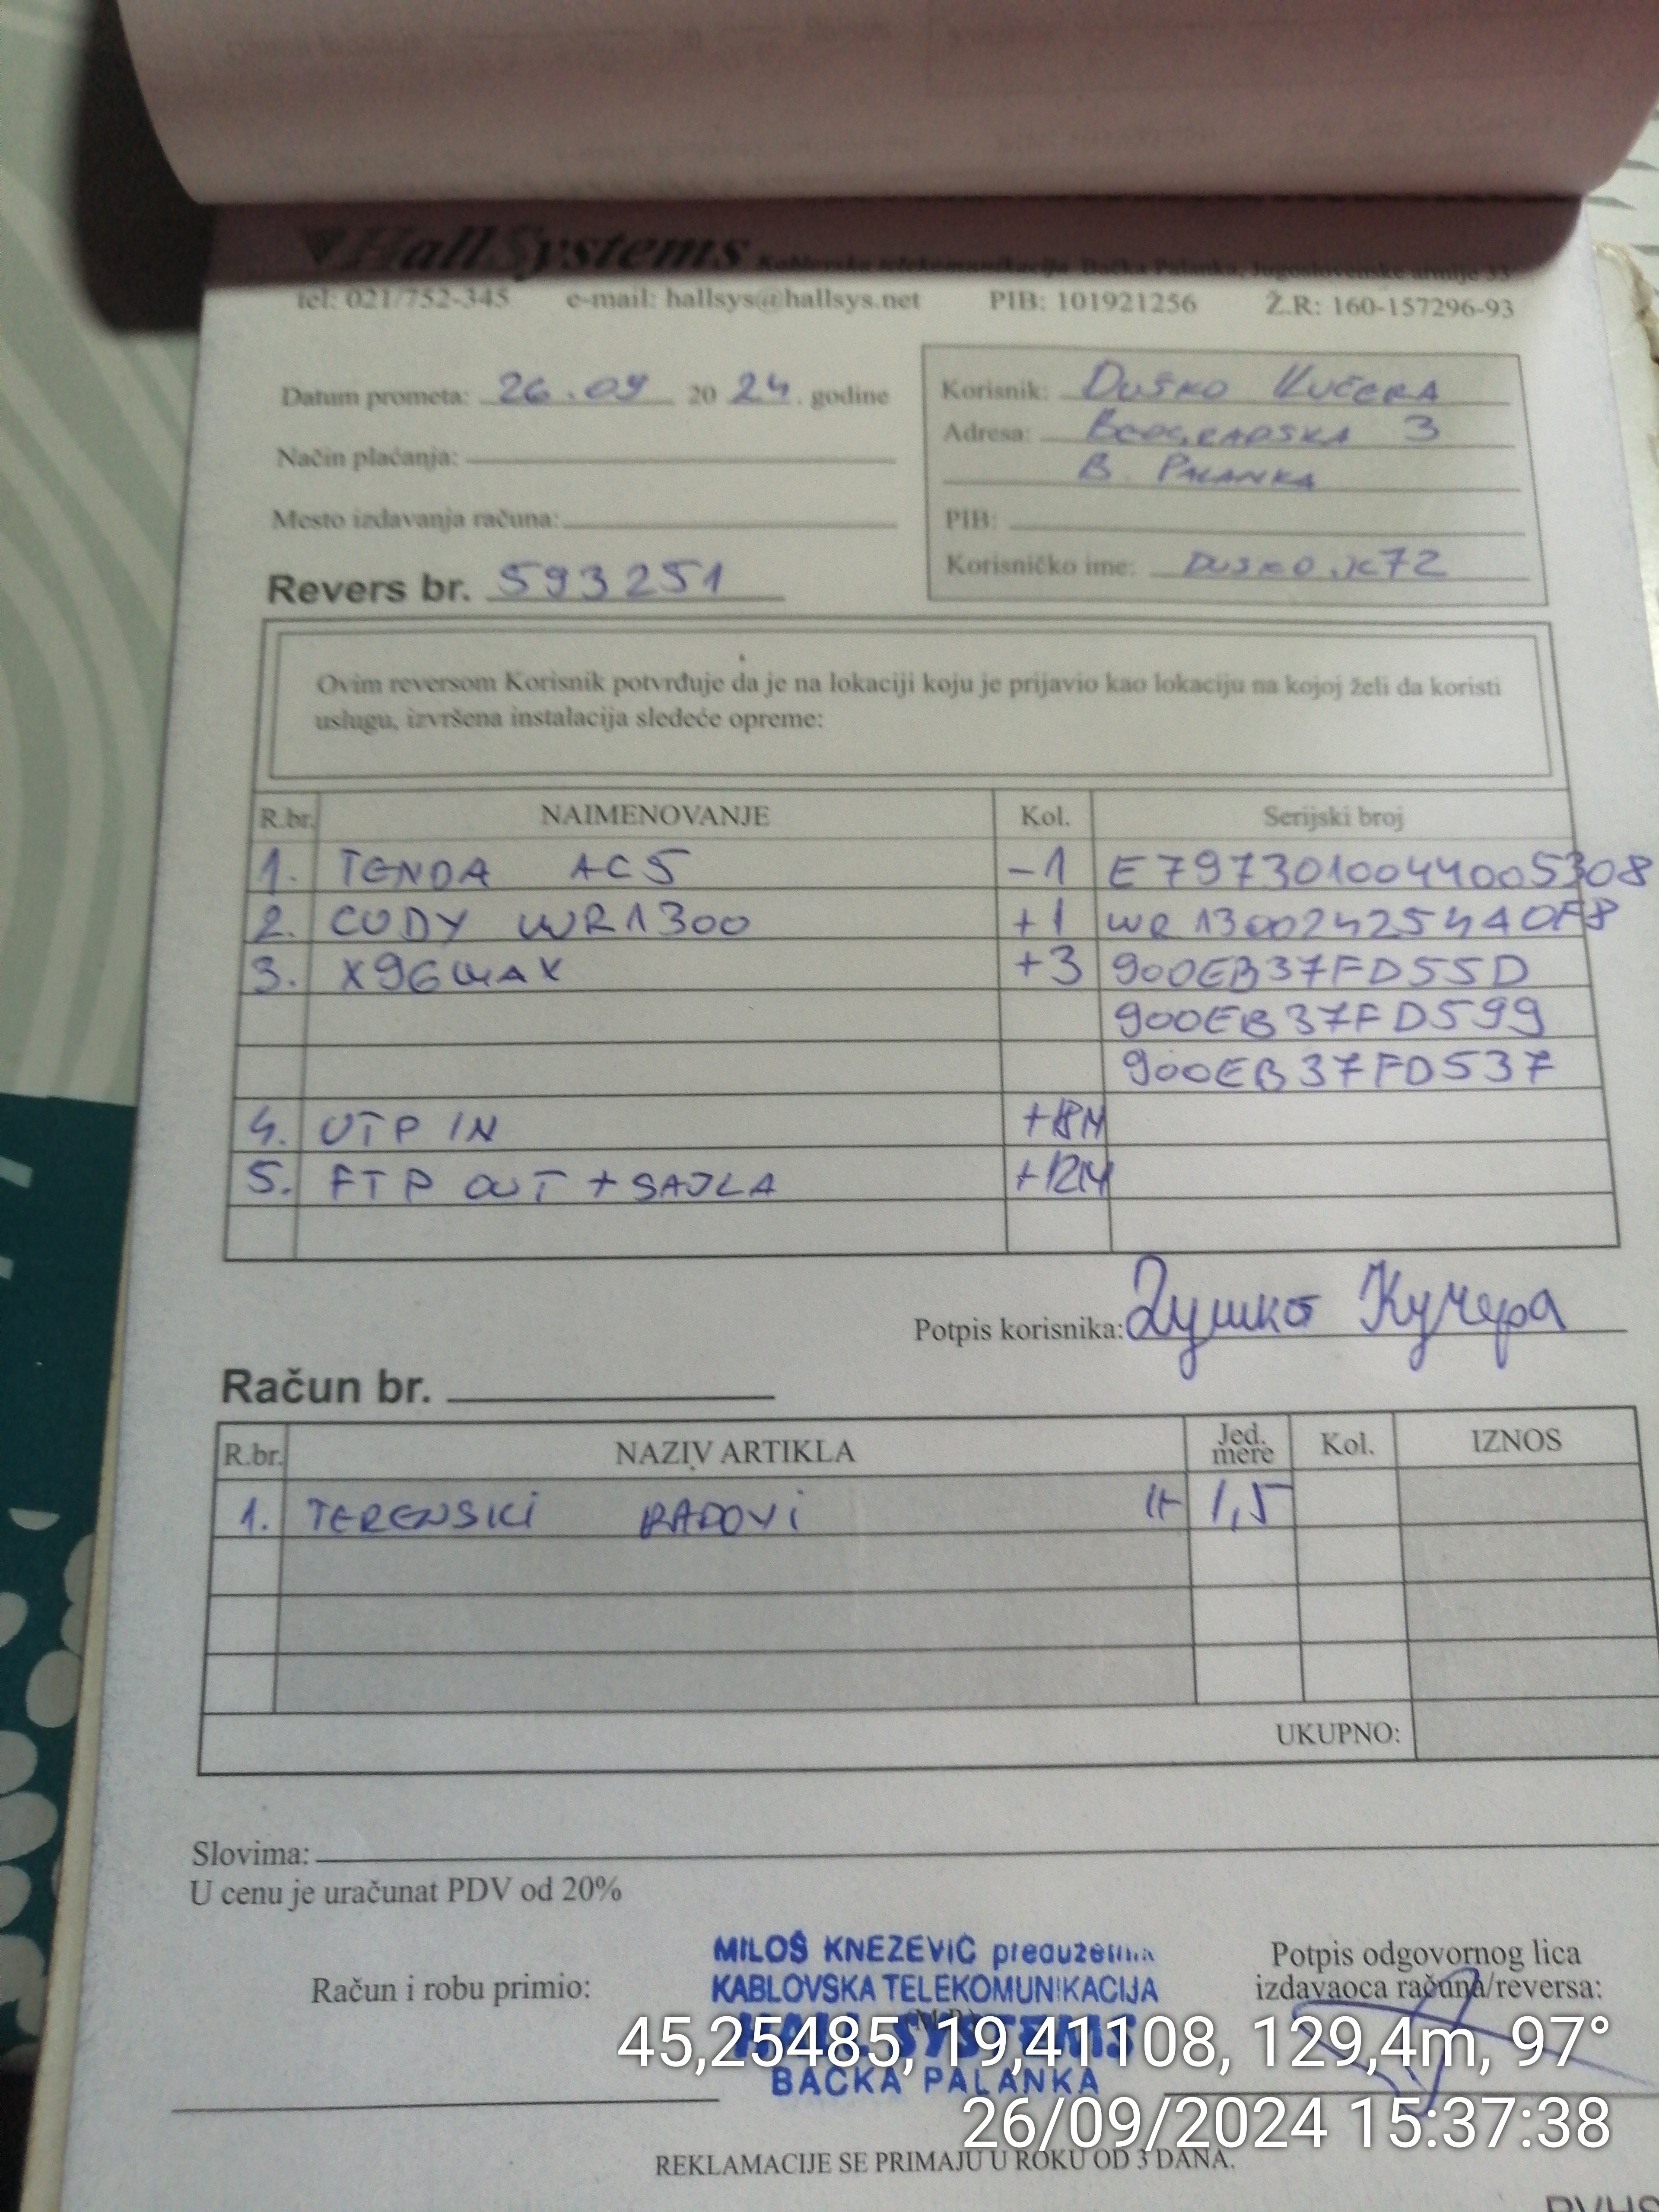 HallSystems Kablovska telekomunikacija Bačka Palanka, Jugoslovenske armije 33
tel: 021/752-345 e-mail: hallsys@hallsys.net PIB: 101921256 Ž.R: 160-157296-93
Datum prometa: 26.09 2024. godine
Način plaćanja:
Mesto izdavanja računa:
Revers br. 593251
Korisnik: DUŠKO KUČERA
Adresa: BEOGRADSKA 3
B. PALANKA
PIB:
Korisničko ime: DUSKO.K72
Ovim reversom Korisnik potvrđuje da je na lokaciji koju je prijavio kao lokaciju na kojoj želi da koristi
uslugu, izvršena instalacija sledeće opreme:
R.br. NAIMENOVANJE Kol. Serijski broj
1. TENDA AC5 -1 E7973010044005308
2. CUDY WR1300 +1 WR13002425440F8
3. X96MAX +3 900EB37FD55D
900EB37FD599
900EB37FD537
4. UTP IN +18M
5. FTP OUT + SAJLA +12M
Potpis korisnika: Душко Кучера
Račun br.
R.br. NAZIV ARTIKLA Jed. mere Kol. IZNOS
1. TERENSKI RADOVI H 1,5
UKUPNO:
Slovima:
U cenu je uračunat PDV od 20%
MILOŠ KNEZEVIĆ preduzetnik
KABLOVSKA TELEKOMUNIKACIJA
HALL SYSTEMS
BAČKA PALANKA
Račun i robu primio:
(M.P.)
Potpis odgovornog lica
izdavaoca računa/reversa:
45,25485, 19,41108, 129,4m, 97°
26/09/2024 15:37:38
REKLAMACIJE SE PRIMAJU U ROKU OD 3 DANA.